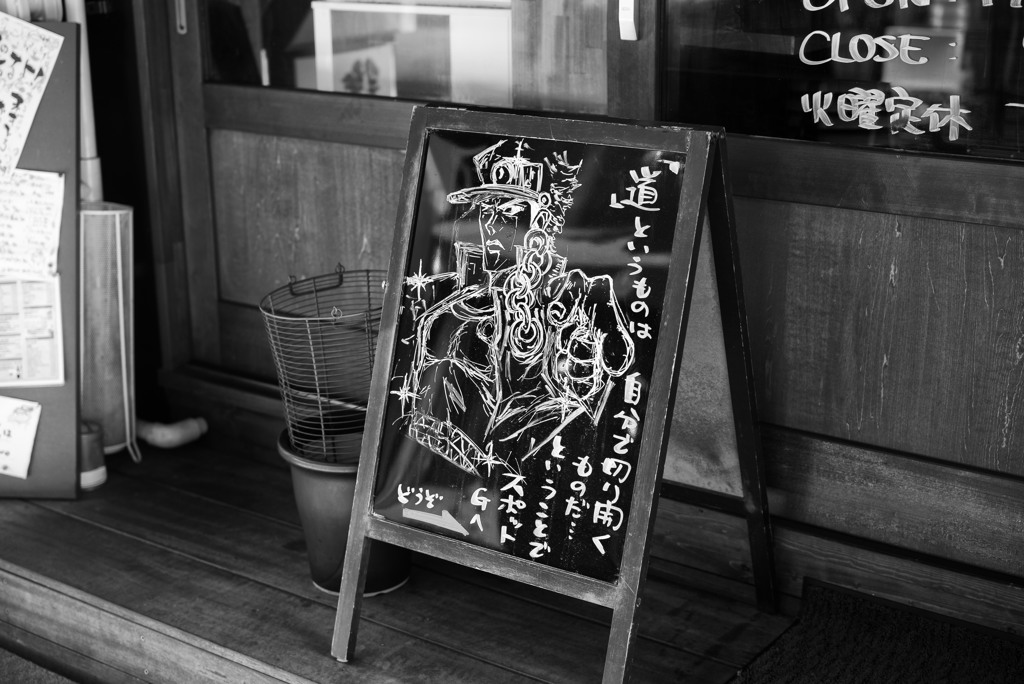 CLOSE:
火曜定休
「道」というものは
自分で切り開く
ものだ…
ということで
スポット
Gへ
どうぞ